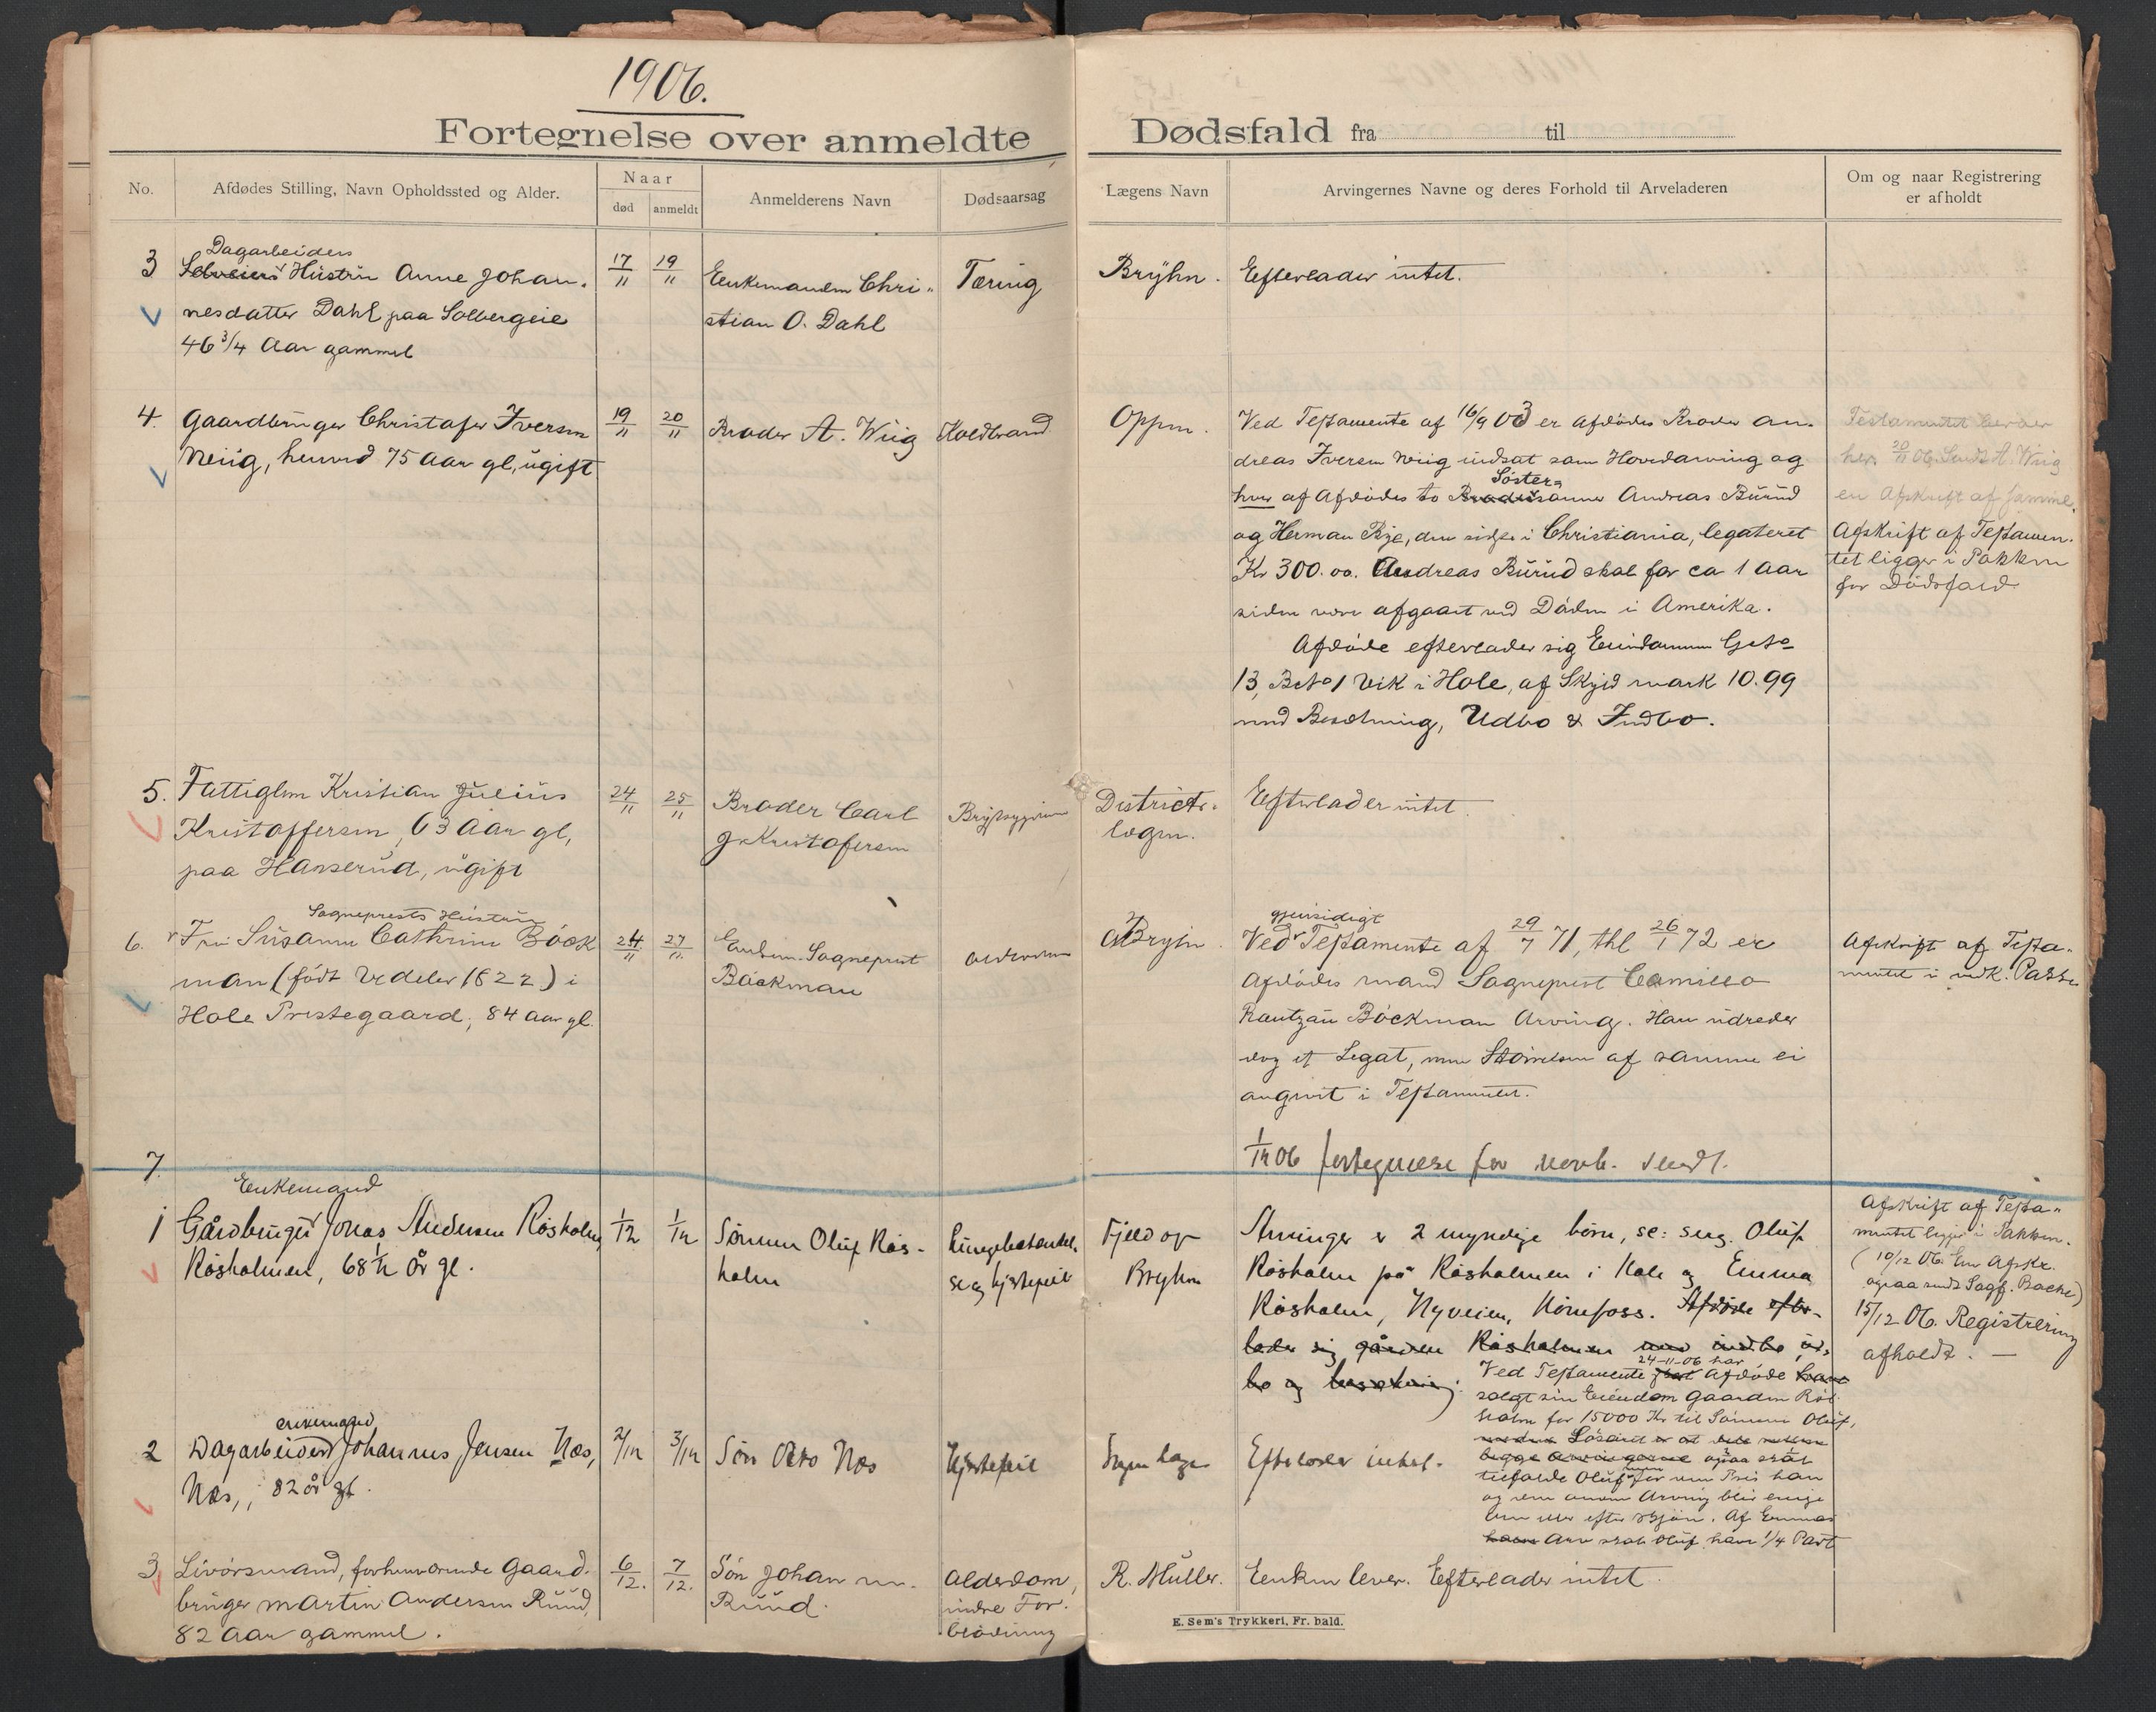 1906.
Fortegnelse over anmeldte Dødsfald fra til
No.
Afdødes Stilling, Navn Opholdssted og Alder.
Naar
død
anmeldt
Anmelderens Navn
Dødsaarsag
Lægens Navn
Arvingernes Navne og deres Forhold til Arveladeren
Om og naar Registrering
er afholdt
3
Dagarbeiders
Selveiers Hustru Anne Johan-
nesdatter Dahl paa Solbergeie
46 3/4 Aar gammel
17/11
19/11
Enkemanden Chri-
stian O. Dahl
Tæring
Bryhn.
Efterlader intet.
4.
Gaardbruger Christofer Iversen
Wiig, 75 Aar gl, ugift
19/11
20/11
Broder A. Wiig
Koldbrand
Oppen.
Ved Testamente af 16/9 03 er Afdødes Broder An-
dreas Iversen Wiig indsat som Hovedarving og
Søster-
hver af Afdødes to Brodersønner Andreas Burud
og Herman Bye, den sidste i Christiania, legateret
Kr 300.00. Andreas Burud skal for ca 1 Aar
siden være afgaaet ved Døden i Amerika.
Afdøde efterlader sig Eiendommen GNo
13, BNo 1 Vik i Hole, af Skyld mark 10.99
med Besætning, Udbo & Indbo.
Testamentet beror
her. 20/11 06. Sendt A. Wiig
en Afskrift af samme.
Afskrift af Testamen-
tet ligger i Pakken
for Dødsfald
5.
Fattiglem Kristian Julius
Kristoffersen, 63 Aar gl,
paa Hanserud, ugift
24/11
25/11
Broder Carl
J. Kristofersen
Districts-
lægen.
Efterlader intet.
6.
Sogneprests Hustru
Fru Susanne Cathrine Böck
man (født Vedeler 1822) i
Hole Prestegaard, 84 aar gl.
24/11
27/11
Enkem. Sogneprest
Böckman
Alderdom
Bryhn.
gjensidigt
Ved Testamente af 29/7 71, thl 26/1 72 er
Afdødes mand Sogneprest Camillo
Rantzau Böckman Arving. Han udreder
dog et Legat, men Størrelsen af samme ei
angivet i Testamentet.
Afskrift af Testa-
mentet i Pakke
7.
1/12 06 fortegnelse for novb. sendt.
1
Enkemand
Gårdbruger Jonas Andersen Røsholm,
Røsholmen, 68 1/2 År gl.
1/12
1/12
Sønnen Oluf Røs-
holm
Lungebetændel-
se og hjertefeil
Fjeld og
Bryhn
Arvinger er 2 myndige børn, se: sug. Oluf
Røsholm på Røsholmen i Hole og Emma
Røsholm, Nyveien, Hønefoss. Afdøde efter-
lader sig gården Røsholmen med indbo, ud-
bo og besætning.
24-11-06 har
Ved Testamente Afdøde
solgt sin Eiendom Gaarden Røs-
holm for 15000 Kr til Sønnen Oluf,
Løsøret
begge arvingerne ogsaa skal
tilfalde Oluf for den Pris han
og den anden Arving blir enige
om eller efter Skjøn. Af Emmas
Arv skal Oluf have 1/4 Part
Afskrift af Testa-
mentet ligger i Pakken.
(10/12 06. En Afskr.
ogsaa sendt Sagf. Bache)
15/12 06. Registrering
afholdt. —
2
enkemand
Dagarbeider Johannes Jensen Næs,
Næs, 82 år gl.
2/12
3/12
Søn Otto Næs
Hjertefeil
Ingen læge
Efterlader intet.
3
Livørsmand, forhenværende Gaard-
bruger Martin Andersen Ruud,
82 Aar gammel.
6/12.
7/12.
Søn Johan M.
Ruud.
Alderdom,
indre For-
blødning
R. Müller.
Enken lever. Efterlader intet.
E. Sem's Trykkeri, Fr.hald.